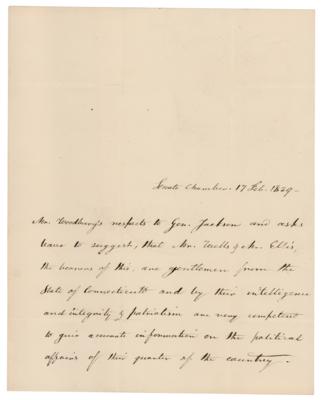 Senate Chamber. 17 Feb. 1829 -
Mr. Woodbury's respects to Gen. Jackson and asks
leave to suggest, that Mr. Wells & Mr. Ellis,
the bearers of this, are gentlemen from the
State of Connecticutt and by their intelligence
and integrity & patriotism are very competent
to give accurate information on the political
affairs of their quarter of the country. -